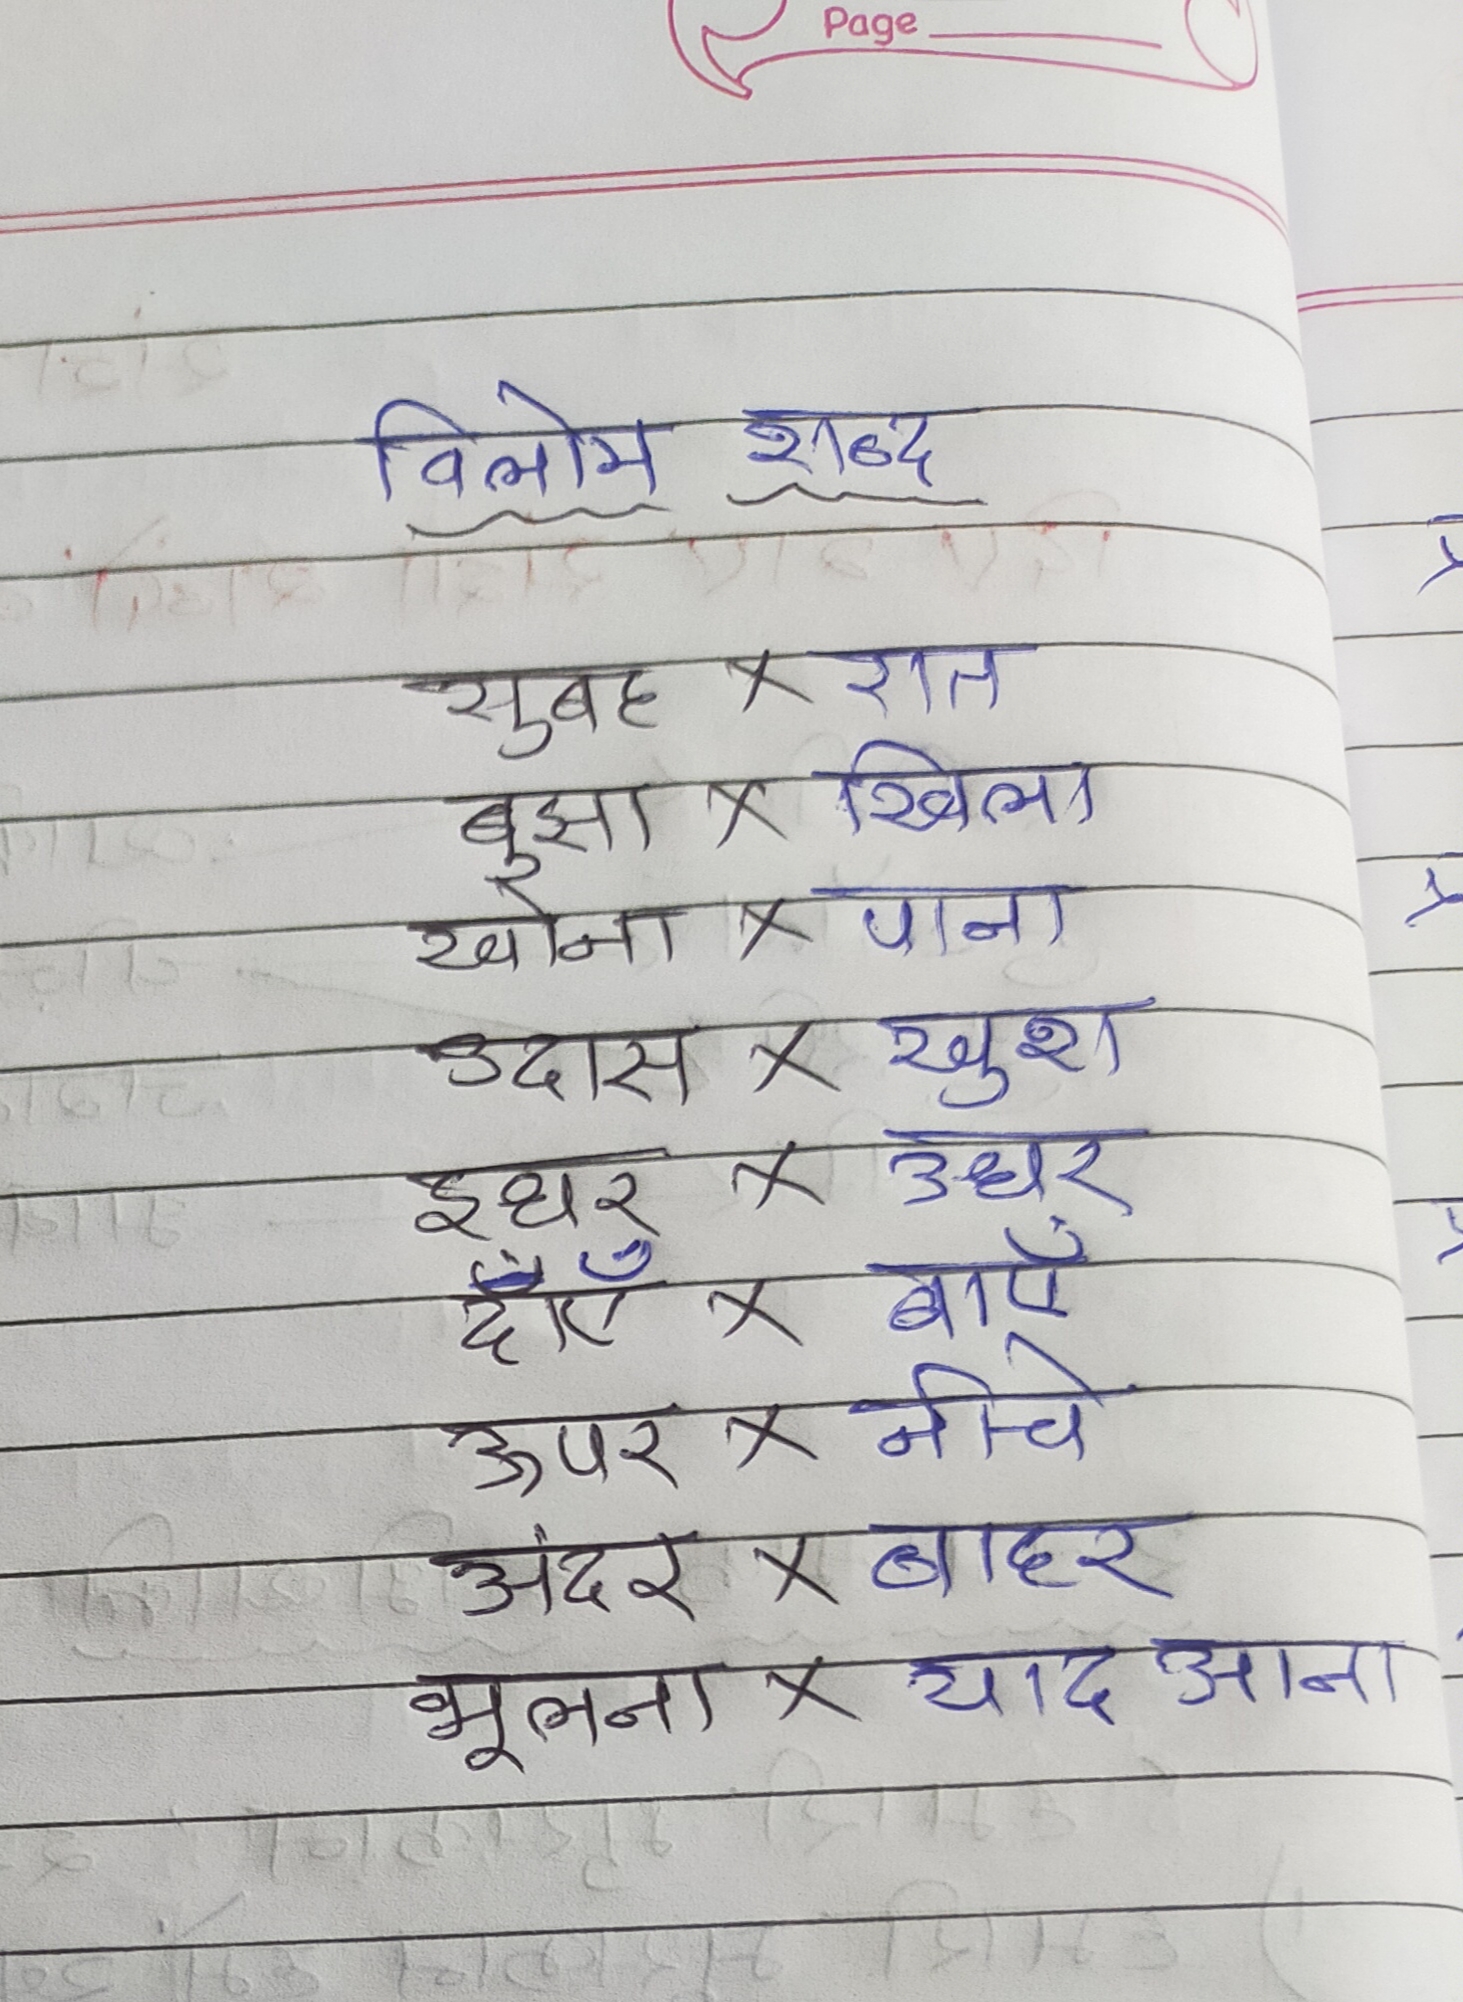 Page
विलोम शब्द
सुबह × रात
बुझा × खिला
खोना × पाना
उदास × खुश
इधर × उधर
दाएँ × बाएँ
ऊपर × नीचे
अंदर × बाहर
भूलना × याद आना